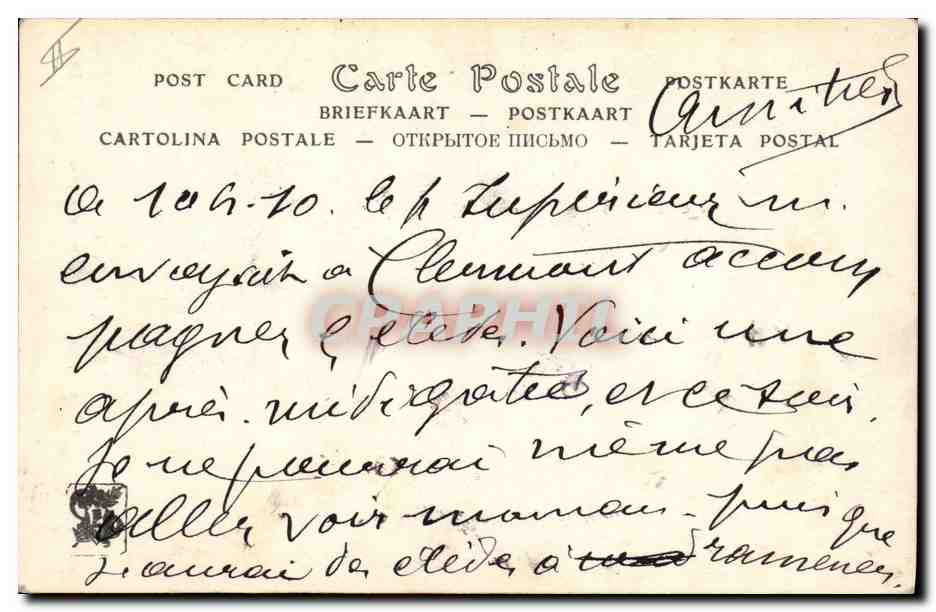 II
POST CARD Carte Postale POSTKARTE
BRIEFKAART — POSTKAART
CARTOLINA POSTALE — ОТКРЫТОЕ ПИСЬМО — TARJETA POSTAL
Amitiés
a 10h.10. le p Supérieur m.
envoyait à Clermont accom
CPAPHIL
pagner élèves. Voici une
après-midi gâtée, et ce soir,
Je ne pourrai même pas
aller voir maman. puis que
j'aurai des élèves à ramener.